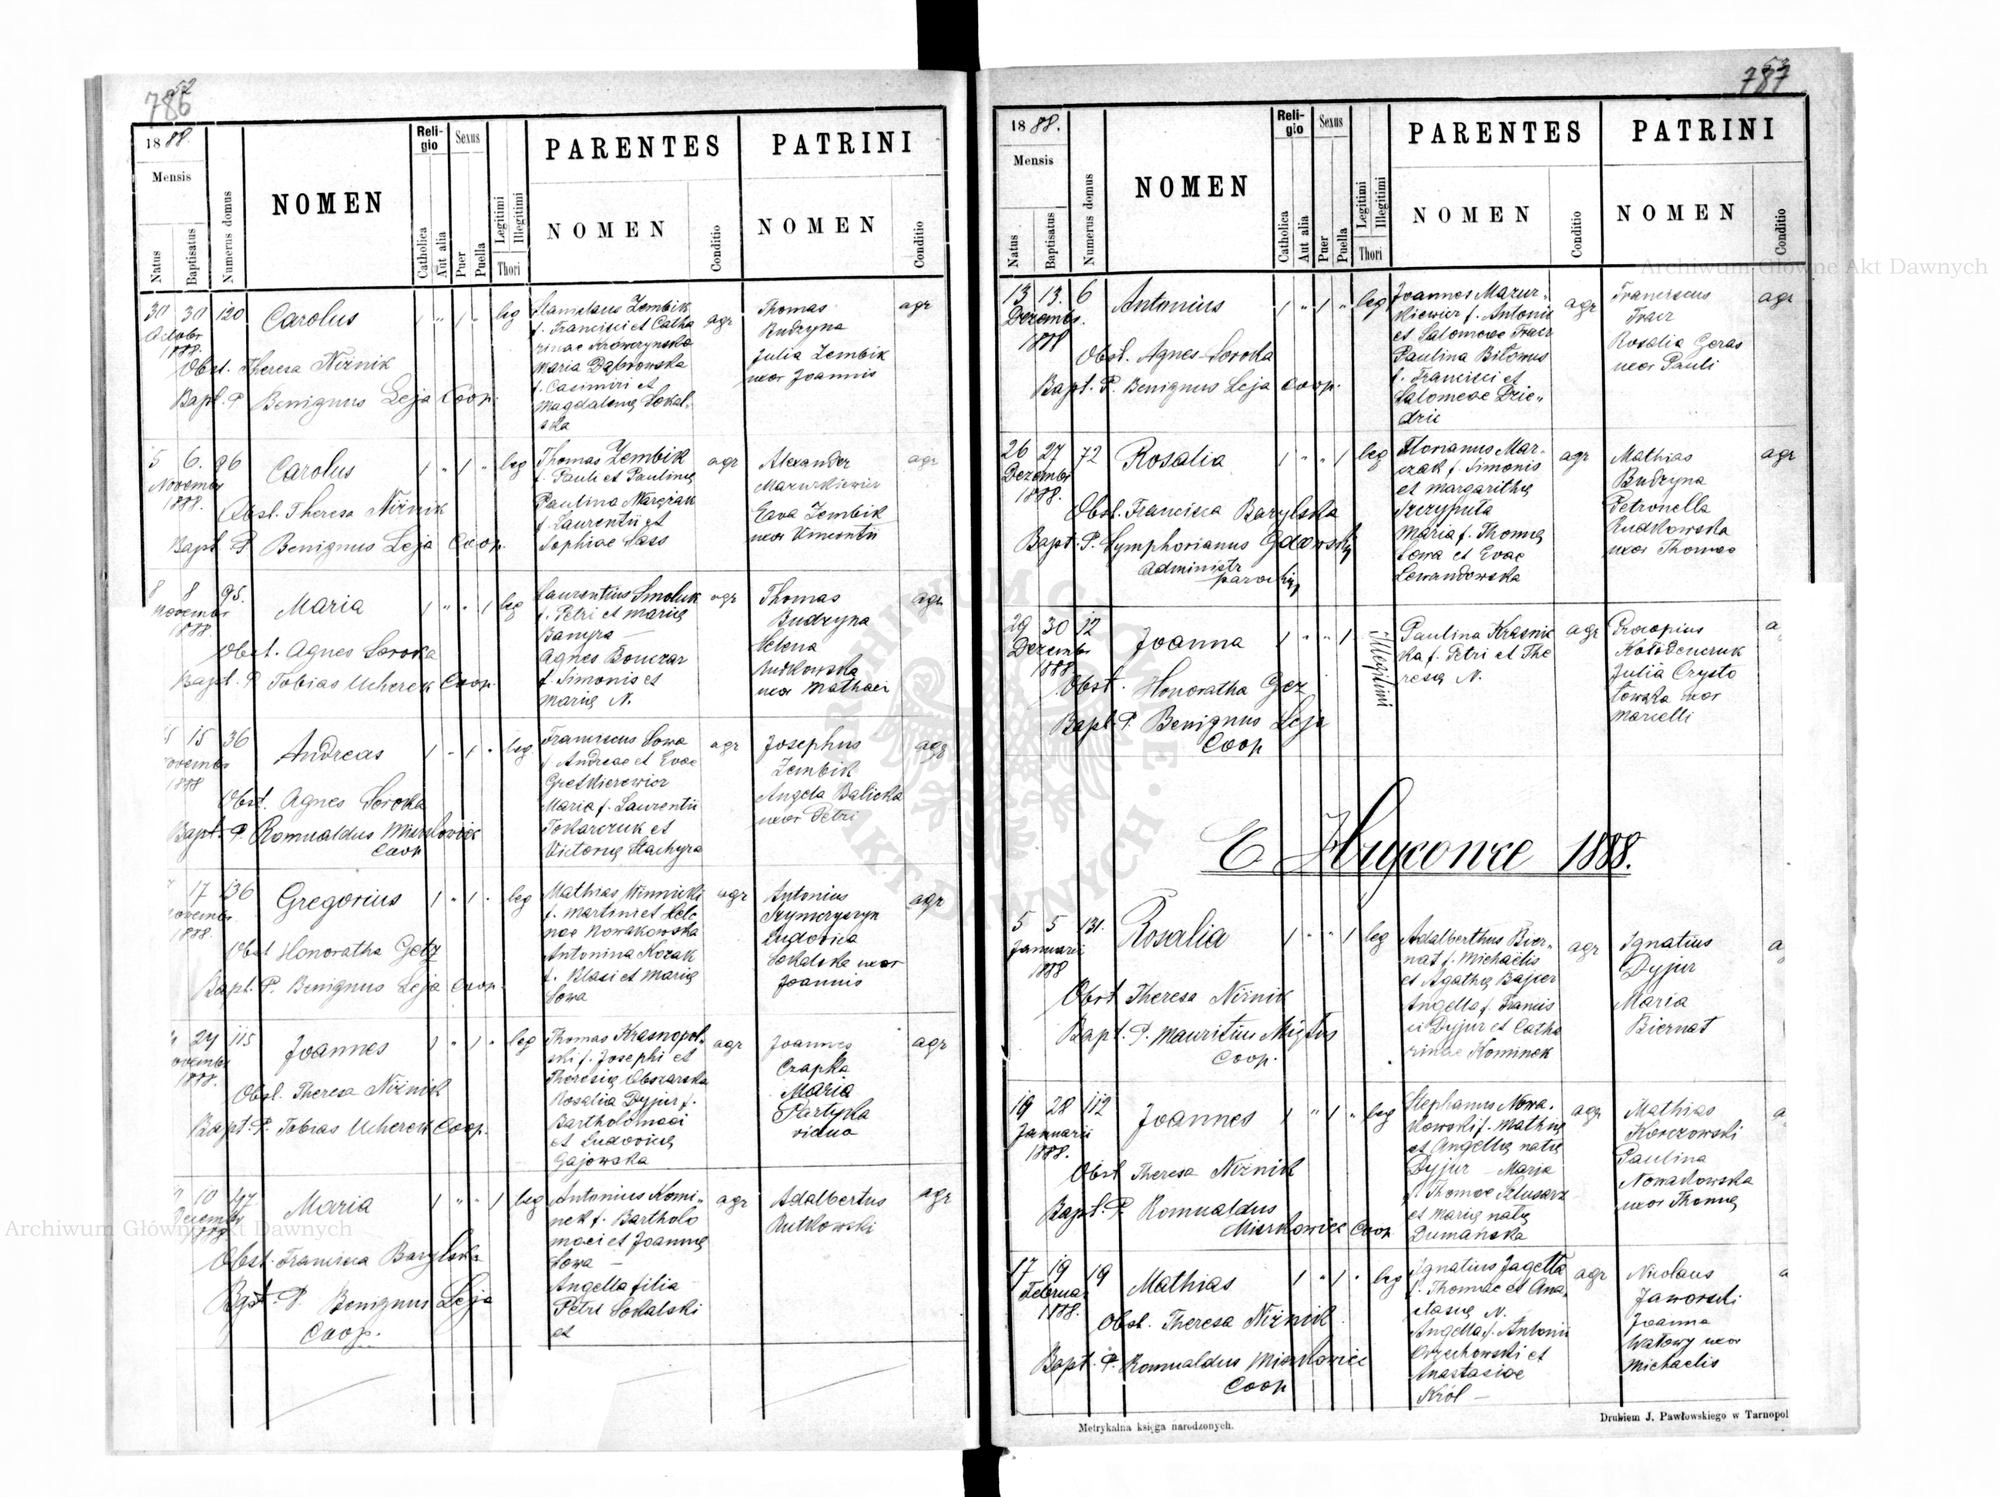 786
52
1888.
Mensis
Natus
Baptisatus
Numerus domus
NOMEN
Religio
Catholica
Aut alia
Sexus
Puer
Puella
Legitimi
Illegitimi
Thori
PARENTES
NOMEN
Conditio
PATRINI
NOMEN
Conditio
30 30 120 Carolus 1 " 1 " leg
Octobr
1888.
Obst. Theresa Niżnik
Bapt. P. Benignus Leja Coop.
Stanislaus Zembik
f. Francisci et Catha
rinae Krowczynska
Maria Dąbrowska
f. Casimiri et
Magdalenę Sokal-
ska
agr
Thomas
Budzyna
Julia Zembik
uxor Joannis
agr
5 6. 96 Carolus 1 " 1 " leg
Novembr
1888.
Obst. Theresa Niżnik
Bapt P Benignus Leja Coop.
Thomas Zembik
f. Pauli et Paulinę
Paulina
f Laurentii et
Sophiae Sass
agr
Alexander
Mazurkiewicz
Eava Zembik
uxor Vincentii
agr
8 8 95. Maria 1 " " 1 leg
Novembr
1888.
Obst. Agnes Soroka
Bapt. P Tobias Ucherek Coop.
Laurentius Smoluk
f. Petri et Marię
Banyra —
Agnes Bonczar
f. Simonis et
Marię N.
agr
Thomas
Budzyna
Helena
Rutkowska
uxor Mathaei
agr
15 36 Andreas 1 " 1 " leg
1888
Obst. Agnes Soroka
Bapt. P. Romualdus Mierkowicz
Coop
Franciscus Sowa
f Andreae et Evae
Maria f. Laurentii
Tokarczuk et
Victorię Stachyra
agr
Josephus
Zembik
Angela Balicka
uxor Petri
agr
17 136 Gregorius 1 " 1 " leg
1888.
Obst Honoratha Getz
Bapt. P. Benignus Leja Coop.
Mathias Winnicki
f. Martini et Hele
nae Nowakowska
Antonina Kozak
f. Blasi et Marię
Sowa
agr
Antonius
Szymczyszyn
Ludovica
Sokalska uxor
Joannis
agr
24 115 Joannes 1 " 1 " leg
1888.
Obst. Theresa Niżnik
Bapt. P. Tobias Ucherek Coop.
Thomas Krasnopol-
ski f. Josephi et
Theresię Obszarska
Rosalia Dyjur f.
Bartholomaei
et Ludovicę
Gajowska
agr
Joannes
Czapka
Maria
Partyka
vidua
agr
10 Maria 1 " " 1 leg
Decembr
Obst. Francisca Barylska
Bapt. P. Benignus Leja
Coop.
Antonius Komi-
nek f. Bartholo
maei et Joannę
Sowa —
Angella filia
Petri Sokalski
et
agr
Adalbertus
Rutkowski
agr
787
53
1888.
Mensis
Natus
Baptisatus
Numerus domus
NOMEN
Religio
Catholica
Aut alia
Sexus
Puer
Puella
Legitimi
Illegitimi
Thori
PARENTES
NOMEN
Conditio
PATRINI
NOMEN
Conditio
13 13. 6 Antonius 1 " 1 " leg
Dezembr.
1888
Obst. Agnes Soroka
Bapt. P. Benignus Leja Coop.
Joannes Mazur-
kiewicz f. Antonii
et Salomeae Tracz
Paulina Bitowus
f. Francisci et
Salomeae Dzie-
dzic
agr
Franciscus
Tracz
Rosalia Geras
uxor Pauli
agr
26 27 72 Rosalia 1 " " 1 leg
Dezembr
1888.
Obst. Francisca Barylska
Bapt. P. Symphorianus Gdowski
Administr
parochię
Florianus Mar-
czak f. Simonis
et Margarithę
Szczyputa
Maria f. Thomę
Sowa et Evae
Lewandowska
agr
Mathias
Budzyna
Petronella
Rudkowska
uxor Thomae
agr
29 30 12 Joanna 1 " " 1 Illegitimi
Dezembr
1888
Obst. Honoratha Gez
Bapt. P. Benignus Leja
Coop
Paulina Krasnic
ka f. Petri et The
resię N.
agr
Procopius
Julia Crysto
towska uxor
Marcelli
a
E Hryconce 1888.
5 5 131. Rosalia 1 " " 1 leg
Januarii
1888
Obst Theresa Niżnik
Bapt. P. Mauritius Miętus
Coop.
Adalberthus Bier-
nat f. Michaelis
et Agathę Bajser
Angella f. Francis
ci Dyjur et Catha
rinae Kominek
agr
Ignatius
Dyjur
Maria
Biernat
a
19 28 112 Joannes 1 " 1 " leg
Januarii
1888.
Obst Theresa Niżnik
Bapt. P. Romualdus
Mierkowicz Coop
Stephanus Nowa-
kowski f. Mathię
et Angellię natę
Dyjur — Maria
f. Thomae Szlusarz
et Marię natę
Dumańska
agr
Mathias
Korczowski
Paulina
Nowakowska
uxor Thomę
a
17 19 19 Mathias 1 " 1 " leg
Februar
1888.
Obst. Theresa Niżnik
Bapt. P. Romualdus Mierkowicz
Coop
Ignatius Jagetta
f. Thomae et Ana-
stasię N.
Angella f. Antonii
Orzechowski et
Anastasiae
Król —
agr
Nicolaus
Jaworski
Joanna
Watowy uxor
Michaelis
a
Metrykalna księga narodzonych.
Drukiem J. Pawłowskiego w Tarnopol
Archiwum Główne Akt Dawnych
Archiwum Główne Akt Dawnych
ARCHIWUM GŁÓWNE AKT DAWNYCH